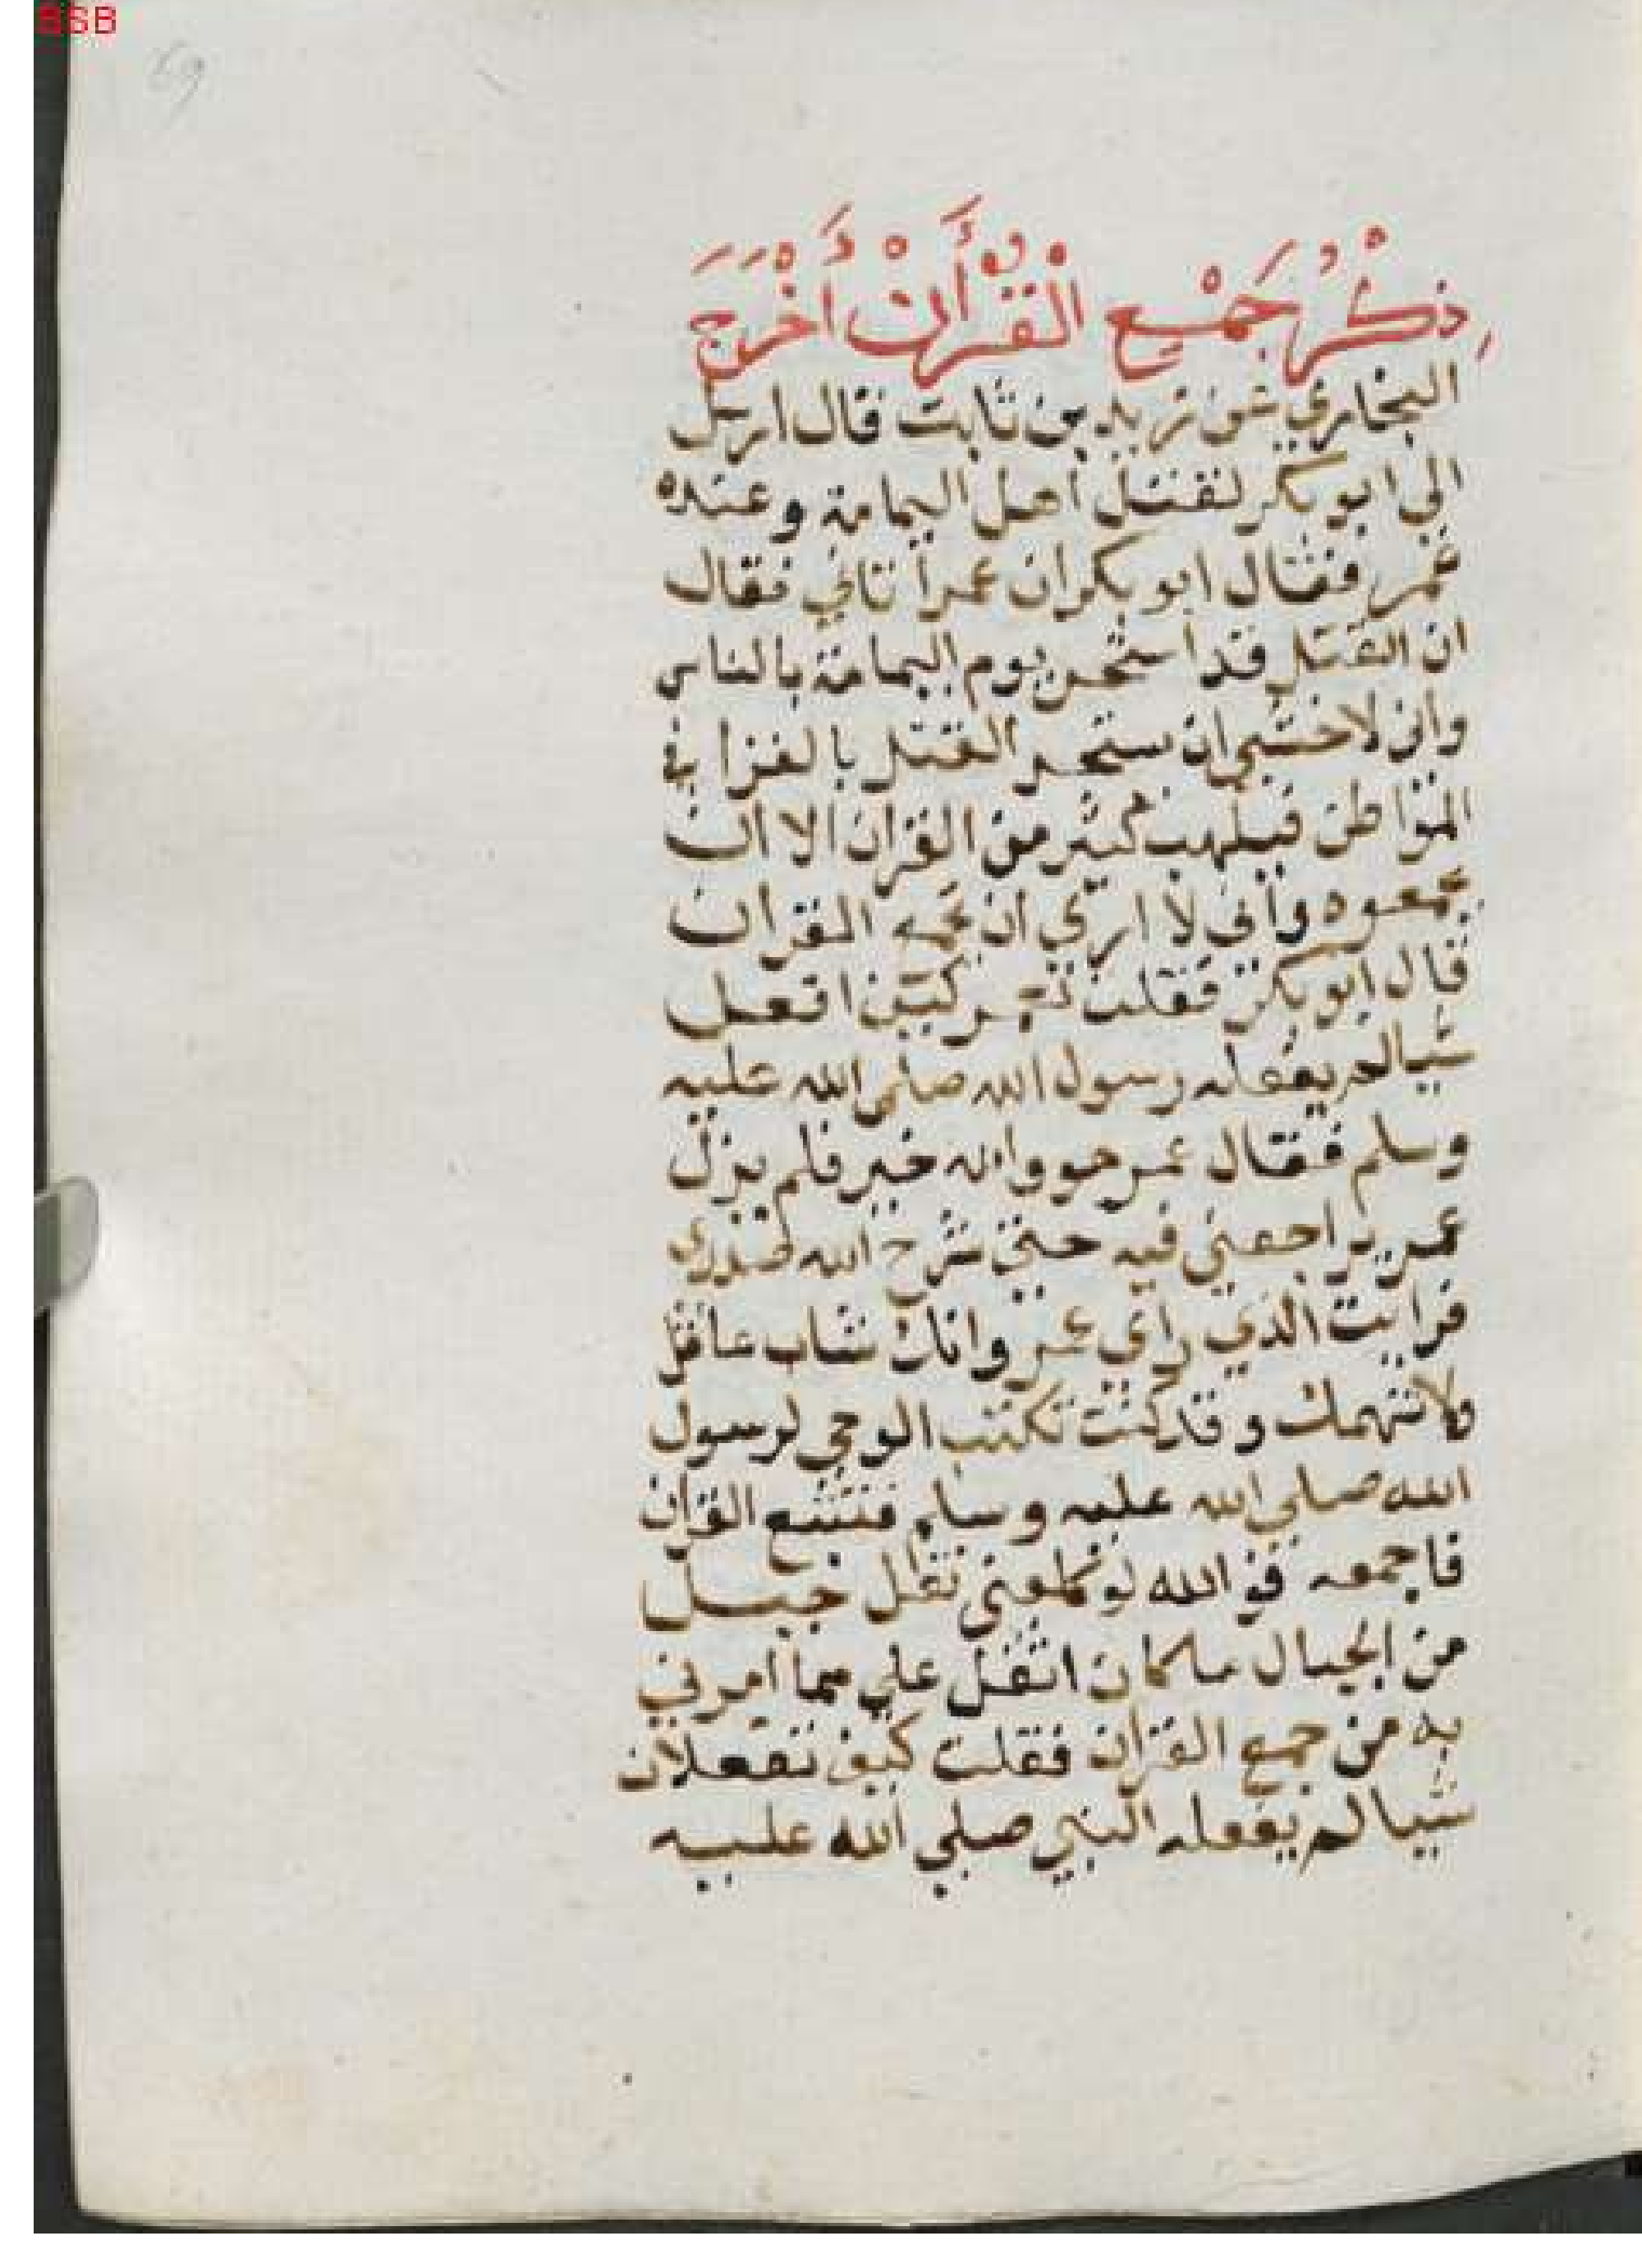 BSB
69
ذِكْرُ جَمْعِ الْقُرْأَانْ أَخْرَجَ
البخاري عن زيد بن ثابت قال ارسل
الي ابو بكر لقتل اهل اليمامة وعنده
عمر فقال ابو بكر ان عمر أتاني فقال
ان القتل قد استحر يوم اليمامة بالناس
واني لاخشي ان يستحر القتل بالغزا في
المواطن كثير من القران الا ان
يجمعوه واني لا اري ان القران
قال ابو بكر فقلت كيف افعل
شيالم يفعله رسول الله صلي الله عليه
وسلم فقال عمر هو والله خير فلم يزل
عمر يراجعني فيه حتي شرح الله صدري
فرايت الذي راي عمر وانك شاب عاقل
ولا نتهمك وقد كنت تكتب الوحي لرسول
الله صلي الله عليه وسلم فتتبع القران
فاجمعه فوالله لو نقل جبل
من الجبال ماكان اثقل علي مما امرني
به من جمع القران فقلت كيف تفعلان
شيالم يفعله النبي صلي الله عليه